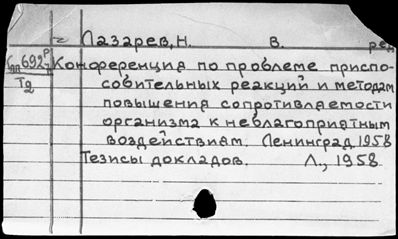 ~ Лазарев, Н. В. ред
692 Конференция по проблеме приспо-
Т2 собительных реакций и методам
повышения сопротивляемости
организма к неблагоприятным
воздействиям. Ленинград 1958
Тезисы докладов. Л., 1958.